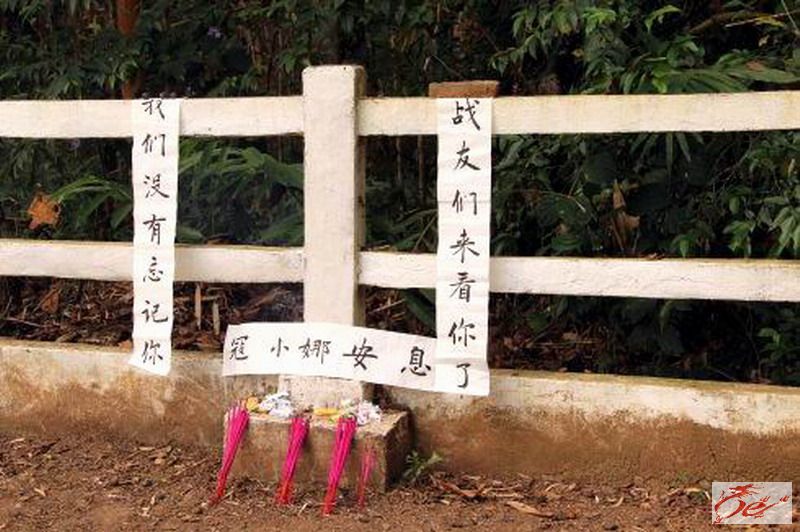 战友们来看你了
我们没有忘记你
寇小娜安息